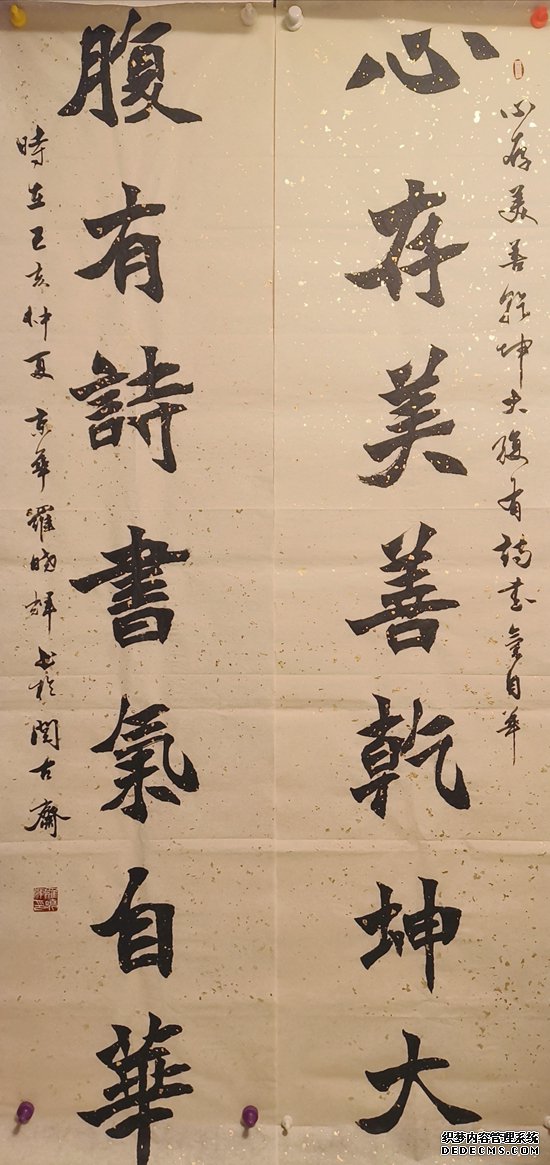 心存美善乾坤大
心存美善乾坤大腹有詩書氣自華
腹有詩書氣自華
時在己亥仲夏京華羅曉輝书於閲古齋
织梦内容管理系统
DEDECMS.COM